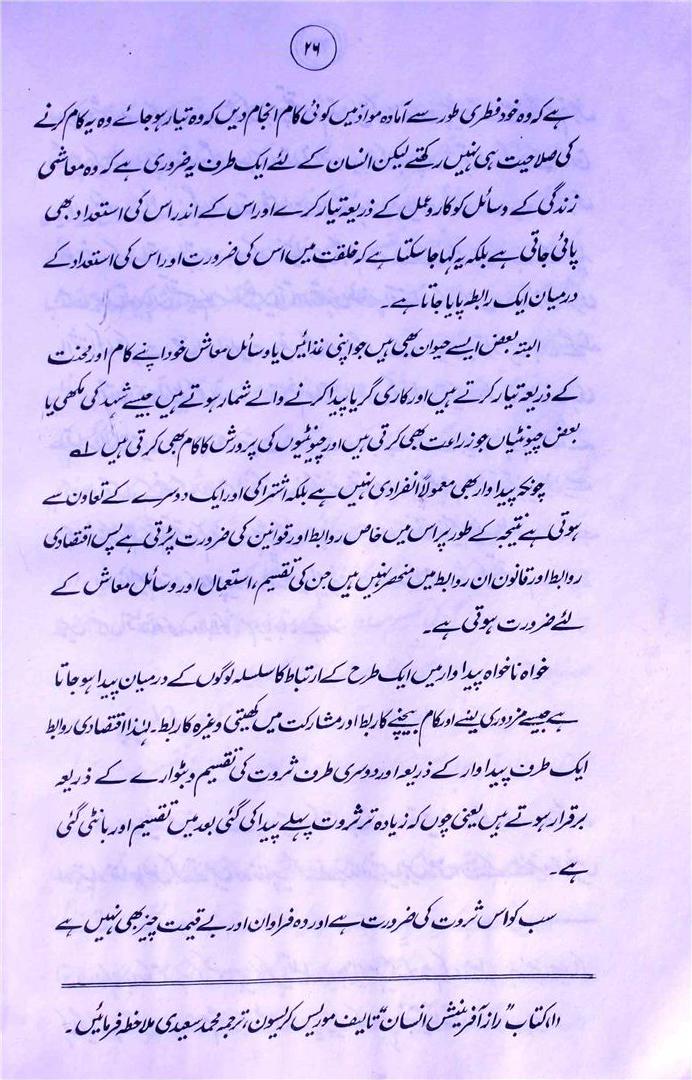 ۲۶
ہے کہ وہ خود فطری طور سے آمادہ مواد میں کوئی کام انجام دیں کہ وہ تیار ہو جائے وہ یہ کام کرنے
کی صلاحیت ہی نہیں رکھتے لیکن انسان کے لئے ایک طرف یہ ضروری ہے کہ وہ معاشی
زندگی کے وسائل کو کار و عمل کے ذریعہ تیار کرے اور اس کے اندر اس کی استعداد بھی
پائی جاتی ہے بلکہ یہ کہا جا سکتا ہے کہ خلقت میں اس کی ضرورت اور اس کی استعداد کے
درمیان ایک رابطہ پایا جاتا ہے۔
البتہ بعض ایسے حیوان بھی ہیں جو اپنی غذائیں یا وسائل معاش خود اپنے کام اور محنت
کے ذریعہ تیار کرتے ہیں اور کاری گر یا پیدا کرنے والے شمار ہوتے ہیں جیسے شہد کی مکھی یا
بعض چیونٹیاں جو زراعت بھی کرتی ہیں اور چیونٹیوں کی پرورش کا کام بھی کرتی ہیں ۱؎
چونکہ پیداوار بھی معمولاً انفرادی نہیں ہے بلکہ اشتراکی اور ایک دوسرے کے تعاون سے
ہوتی ہے نتیجہ کے طور پر اس میں خاص روابط اور قوانین کی ضرورت پڑتی ہے پس اقتصادی
روابط اور قانون ان روابط میں منحصر نہیں ہیں جن کی تقسیم، استعمال اور وسائل معاش کے
لئے ضرورت ہوتی ہے۔
خواہ ناخواہ پیداوار میں ایک طرح کے ارتباط کا سلسلہ لوگوں کے درمیان پیدا ہو جاتا
ہے جیسے مزدوری لینے اور کام بیچنے کا ربط اور مشارکت میں کھیتی وغیرہ کا ربط۔ لہٰذا اقتصادی روابط
ایک طرف پیداوار کے ذریعہ اور دوسری طرف ثروت کی تقسیم و بٹوارے کے ذریعہ
برقرار ہوتے ہیں یعنی چوں کہ زیادہ تر ثروت پہلے پیدا کی گئی بعد میں تقسیم اور بانٹی گئی
ہے۔
سب کو اس ثروت کی ضرورت ہے اور وہ فراوان اور بے قیمت چیز بھی نہیں ہے
۱، کتاب "راز آفرینش انسان" تالیف موریس کریسون، ترجمہ محمد سعیدی ملاحظہ فرمائیں۔